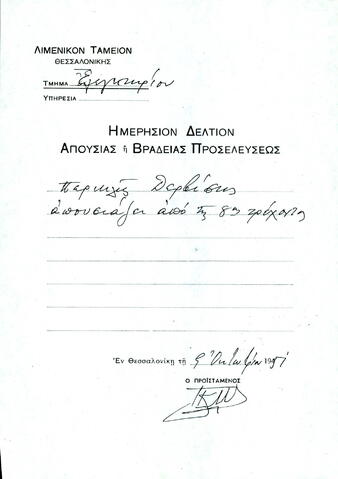 ΛΙΜΕΝΙΚΟΝ ΤΑΜΕΙΟΝ
ΘΕΣΣΑΛΟΝΙΚΗΣ
ΤΜΗΜΑ
ΥΠΗΡΕΣΙΑ
ΗΜΕΡΗΣΙΟΝ ΔΕΛΤΙΟΝ
ΑΠΟΥΣΙΑΣ ἢ ΒΡΑΔΕΙΑΣ ΠΡΟΣΕΛΕΥΣΕΩΣ
Περικλῆς Δερβίσης
ἀπουσιάζει ἀπὸ τῆς 8ης τρέχοντος
Ἐν Θεσσαλονίκῃ τῇ 9 Ὀκτωβρίου 1951
Ο ΠΡΟΪΣΤΑΜΕΝΟΣ